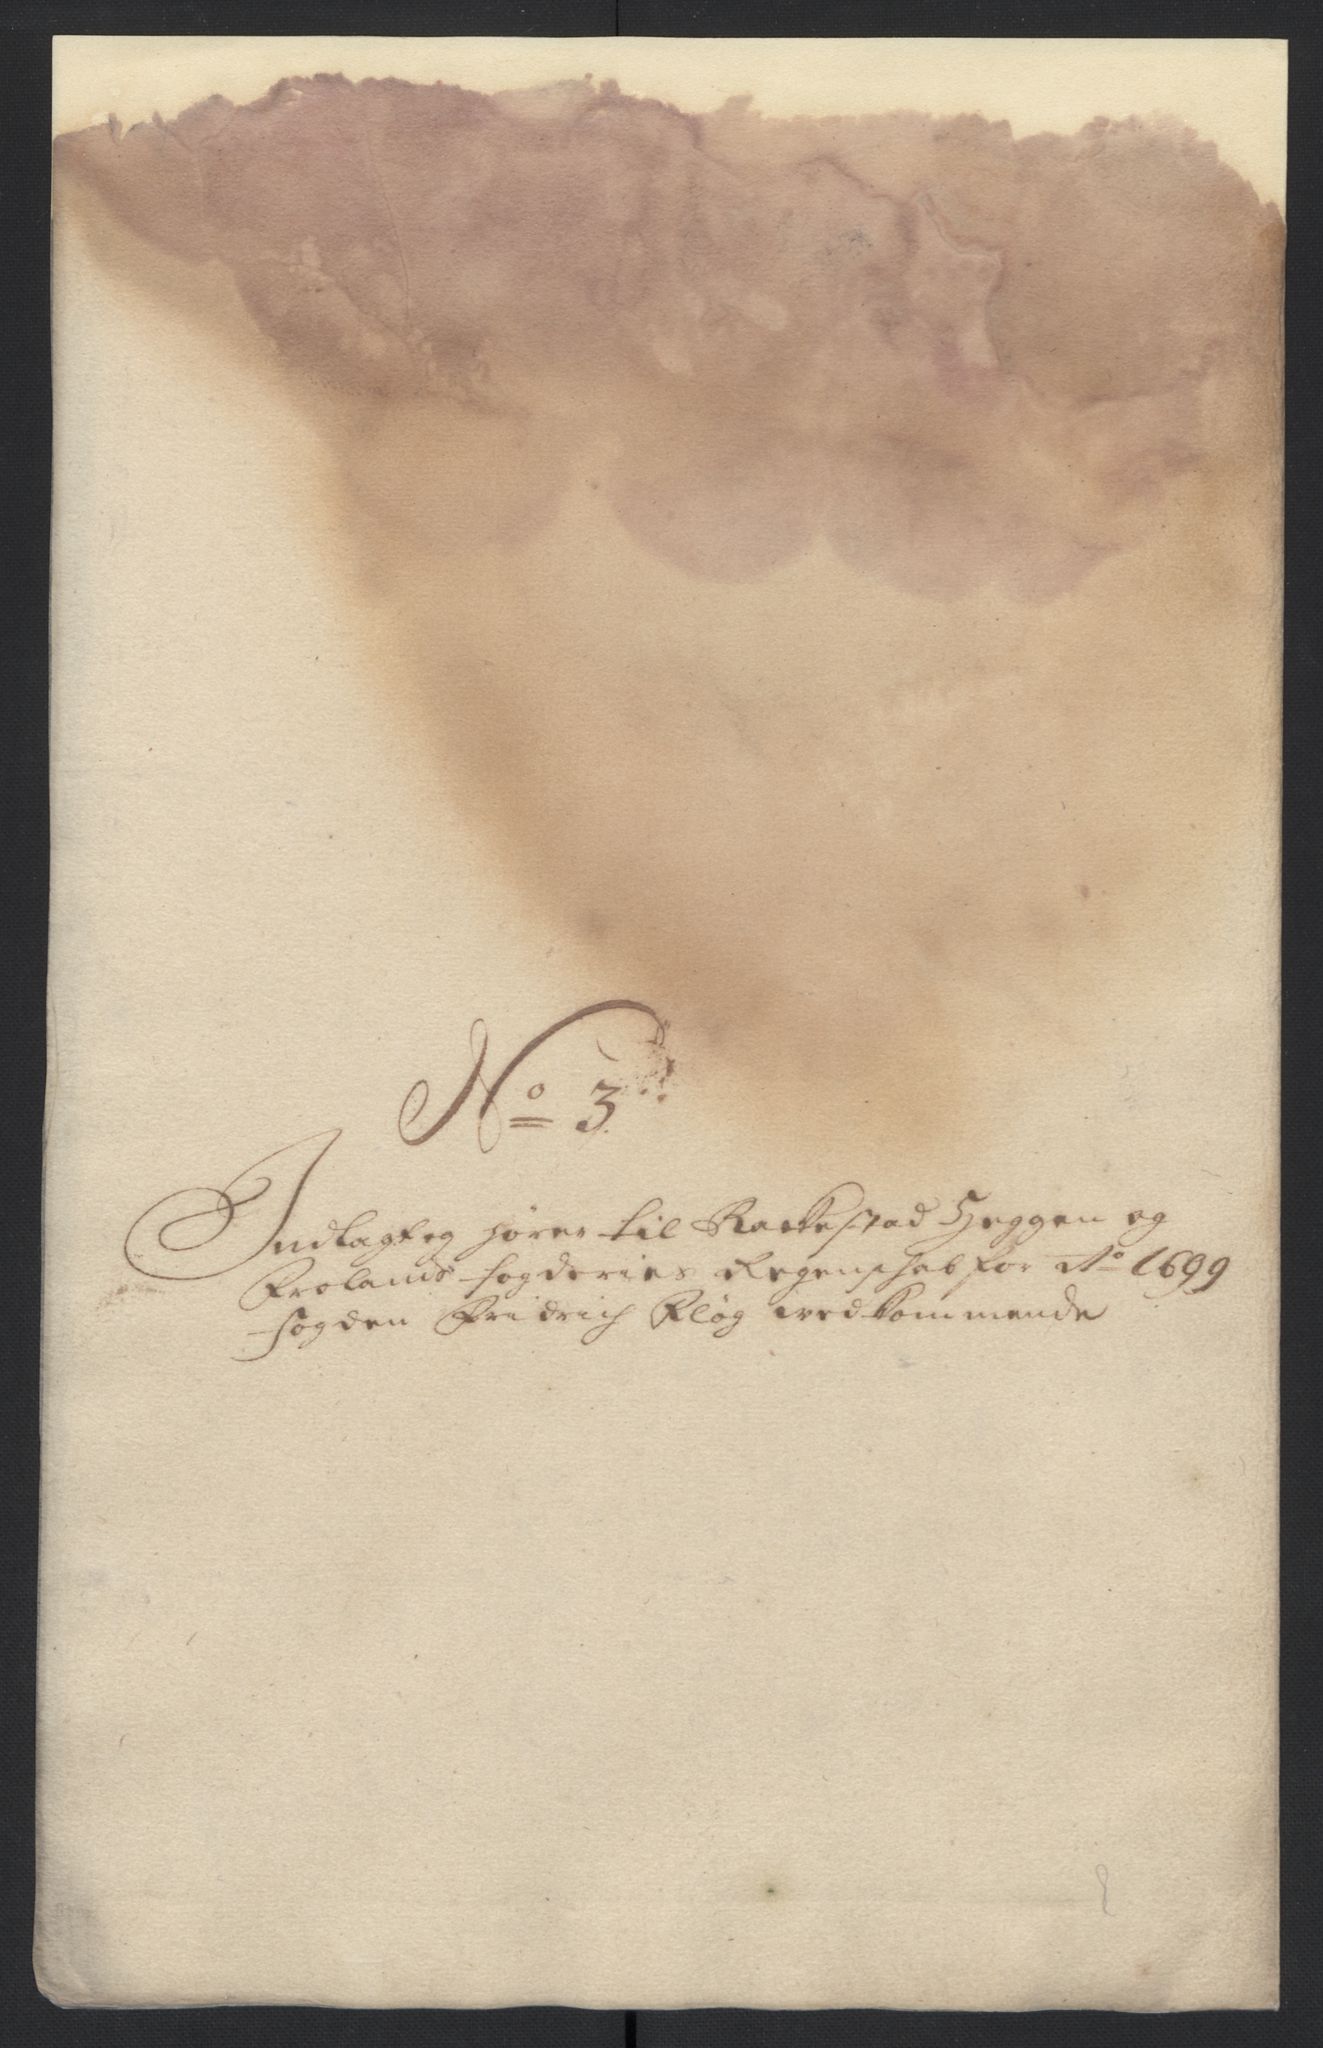 No 3.
Indlagt og hører til Rackestad Heggen og
Frolands fogderies Regenschab for Ao 1699
fogden Fridrich Kløg wedkommende